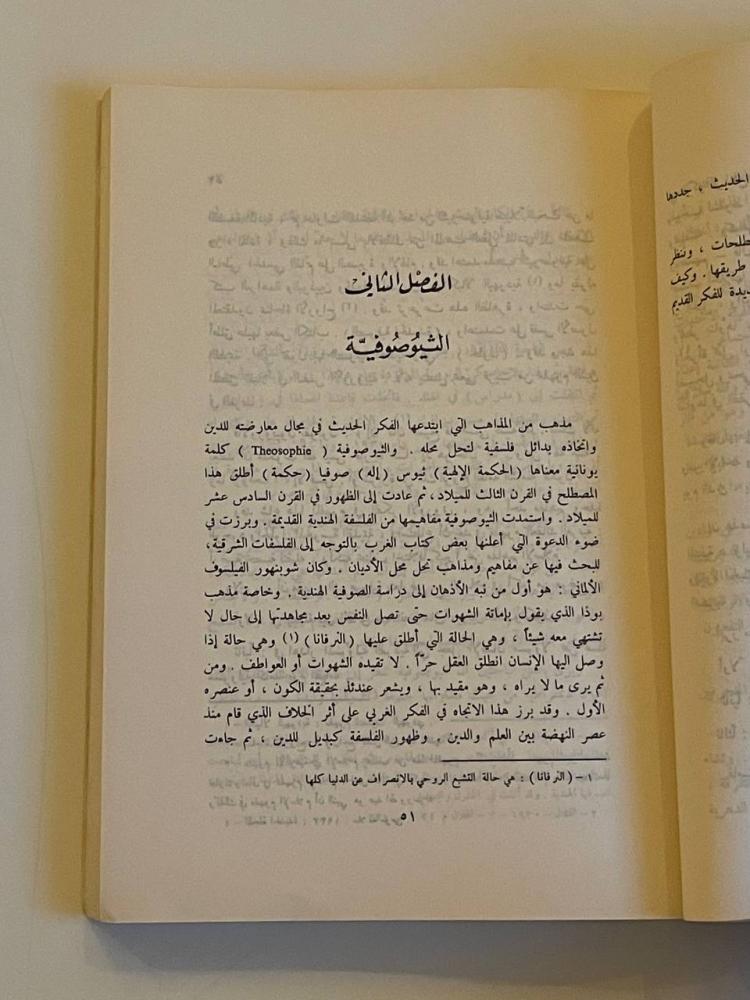 الفصل الثاني
الثيوصوفيّة
مذهب من المذاهب التي ابتدعها الفكر الحديث في مجال معارضته للدين
واتخاذه بدائل فلسفية لتحل محله . والثيوصوفية ( Theosophie ) كلمة
يونانية معناها (الحكمة الإلهية) ثيوس (إله) صوفيا (حكمة) أطلق هذا
المصطلح في القرن الثالث للميلاد ، ثم عادت إلى الظهور في القرن السادس عشر
للميلاد . واستمدت الثيوصوفية مفاهيمها من الفلسفة الهندية القديمة . وبرزت في
ضوء الدعوة التي أعلنها بعض كتاب الغرب بالتوجه إلى الفلسفات الشرقية،
للبحث فيها عن مفاهيم ومذاهب تحل محل الأديان . وكان شوبنهور الفيلسوف
الألماني : هو أول من نبه الأذهان إلى دراسة الصوفية الهندية . وخاصة مذهب
بوذا الذي يقول بإماتة الشهوات حتى تصل النفس بعد مجاهدتها إلى حال لا
تشتهي معه شيئاً ، وهي الحالة التي أطلق عليها (النرفانا) (١) وهي حالة إذا
وصل اليها الإنسان انطلق العقل حرّاً . لا تقيده الشهوات أو العواطف . ومن
ثم يرى ما لا يراه ، وهو مقيد بها ، ويشعر عندئذ بحقيقة الكون ، أو عنصره
الأول . وقد برز هذا الاتجاه في الفكر الغربي على أثر الخلاف الذي قام منذ
عصر النهضة بين العلم والدين . وظهور الفلسفة كبديل للدين ، ثم جاءت
١ – (النرفانا) : هي حالة التشبع الروحي بالانصراف عن الدنيا كلها
٥١
الحديث ، جددها
طلحات ، وننظر
طريقها . وكيف
ديدة للفكر القديم